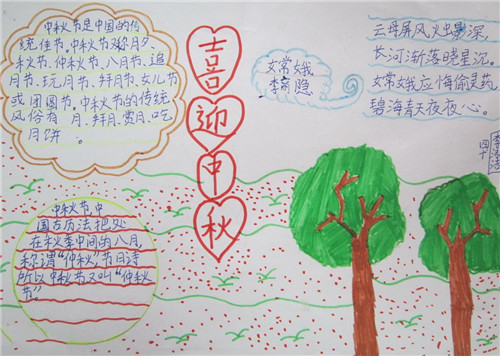 中秋节是中国的传
统佳节,中秋节又称月夕、
秋节、仲秋节、八月节、追
月节、玩月节、拜月节、女儿节
或团圆节,中秋节的传统
风俗有 月、拜月、赏月、吃
月饼。
喜
迎
中
秋
嫦娥
李商隐
云母屏风烛影深,
长河渐落晓星沉。
嫦娥应悔偷灵药,
碧海青天夜夜心。
中秋节,中
国古历法把处
在秋季中间的八月,
称谓“仲秋”节日诗
所以中秋节又叫“仲秋
节”